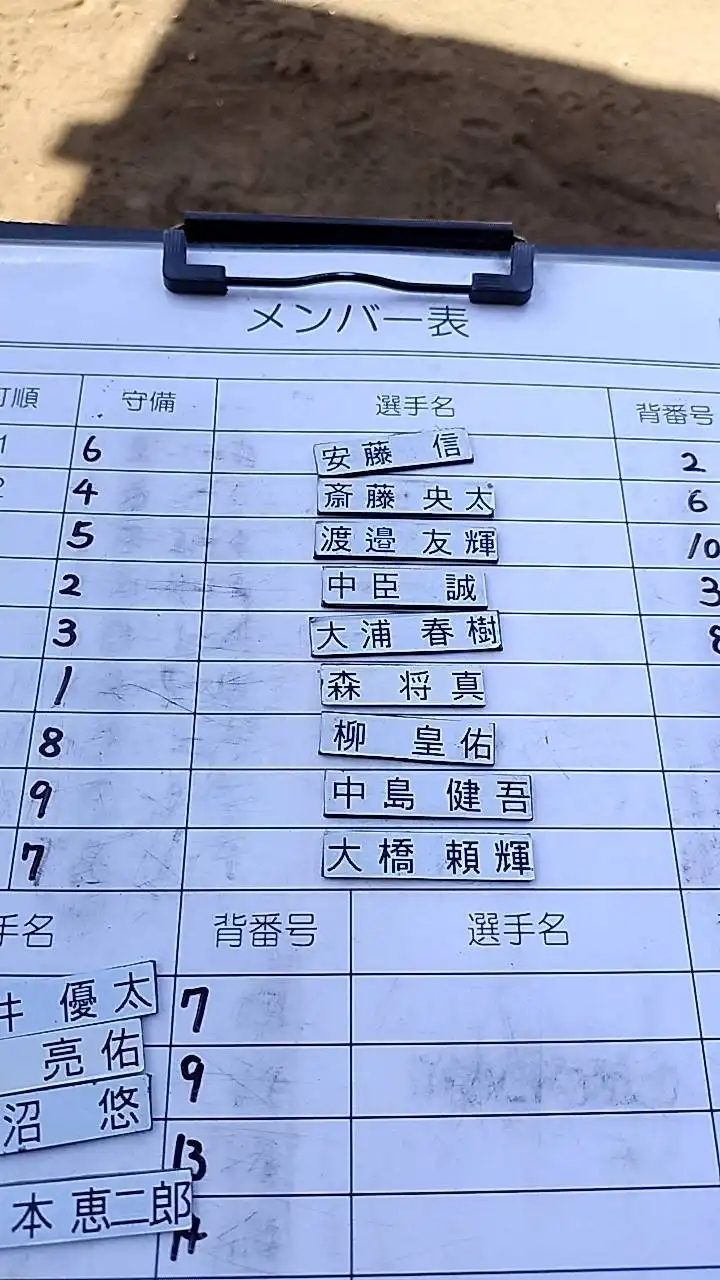 メンバー表
打順 守備 選手名 背番号
1 6 安藤 信 2
2 4 斎藤 央太 6
5 渡邉 友輝 10
2 中臣 誠 3
3 大浦 春樹 8
1 森 将真
8 柳 皇佑
9 中島 健吾
7 大橋 頼輝
手名 背番号 選手名
井 優太 7
亮佑 9
沼 悠 13
本 恵二郎 14